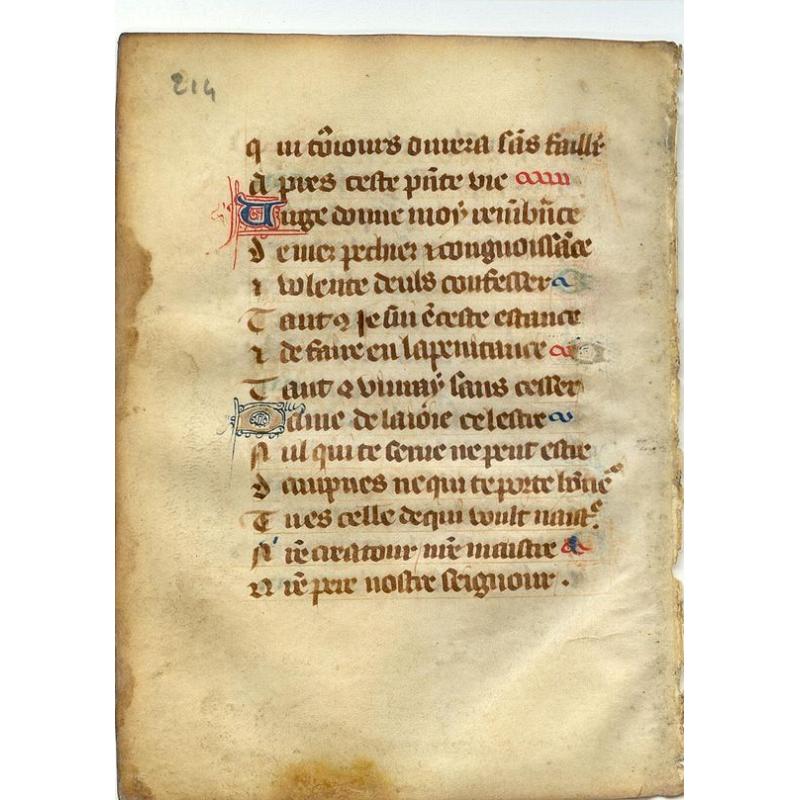 214
q ui to͂iours durera sa͂s faille
A pres ceste pn͂te vie
Uuge donne moy remẽbñce
D e mes pechies ⁊ congnoissa͂ce
⁊ volente deuls confesser
T aut q̃ je sui ẽ ceste estance
⁊ de faire en la penitance
T ant q viuray sans cesser
Dame de la ioie celestre
N ul qui te serue ne peut estre
D aupnes ne qui te porte hõne
T u es celle de qui voult naist
N r̃e creatour nr̃e maistre
N r̃e pere nostre seignour .